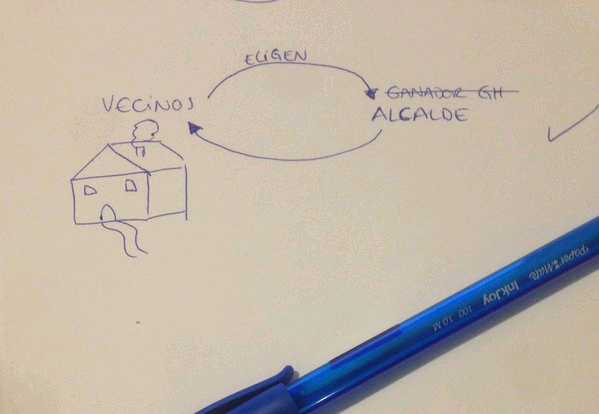 ELIGEN
VECINOS
GANADOR GH
ALCALDE
Paper Mate InkJoy 100 1.0 M